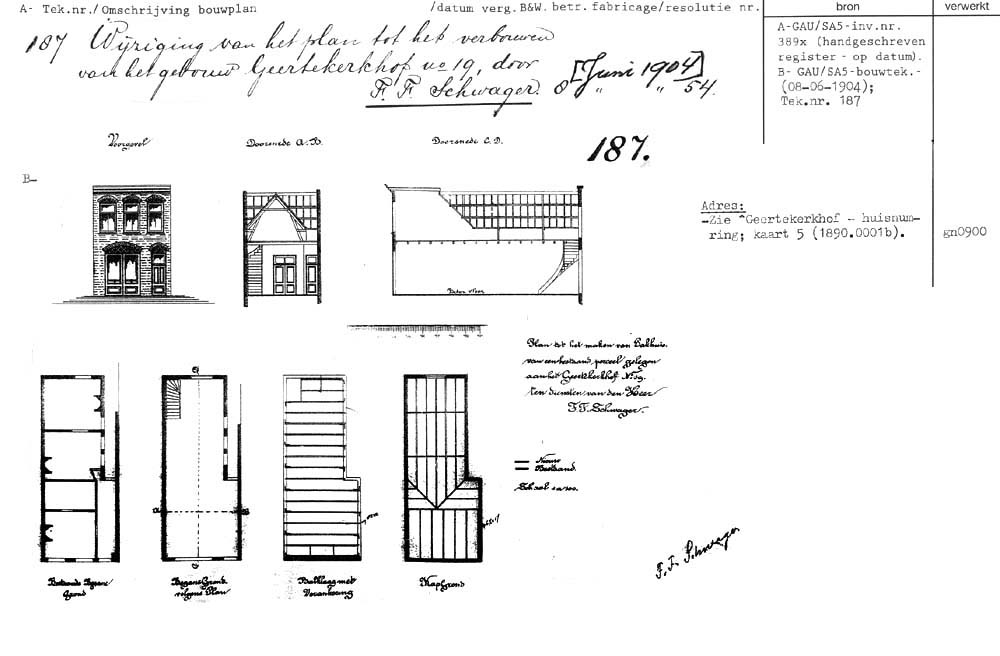 A- Tek.nr./Omschrijving bouwplan /datum verg.B&W. betr.fabricage/resolutie nr.
bron
verwerkt
187 Wijziging van het plan tot het verbouwen
van het gebouw Geertekerkhof no 19, door
F. F. Schwager. 8 [Juni 1904] 54.
A-GAU/SA5-inv.nr.
389x (handgeschreven
register - op datum).
B- GAU/SA5-bouwtek.-
(08-06-1904);
Tek.nr. 187
Voorgevel
Doorsnede A.B.
Doorsnede C.D.
187.
B-
Adres:
-Zie ^Geertekerkhof - huisnum-
ring; kaart 5 (1890.0001b).
gn0900
Beton vloer
Plan tot het maken van Bakhuis.
van een bestaand perceel gelegen
aan het Geertekerkhof No. 19.
ten diensten van den Heer
F. F. Schwager.
Nieuw
Bestaand.
Schaal
F. F. Schwager
Bestaande Begane
grond
Begane Grond
volgens Plan
Balklaag met
Verankering
Kapgrond